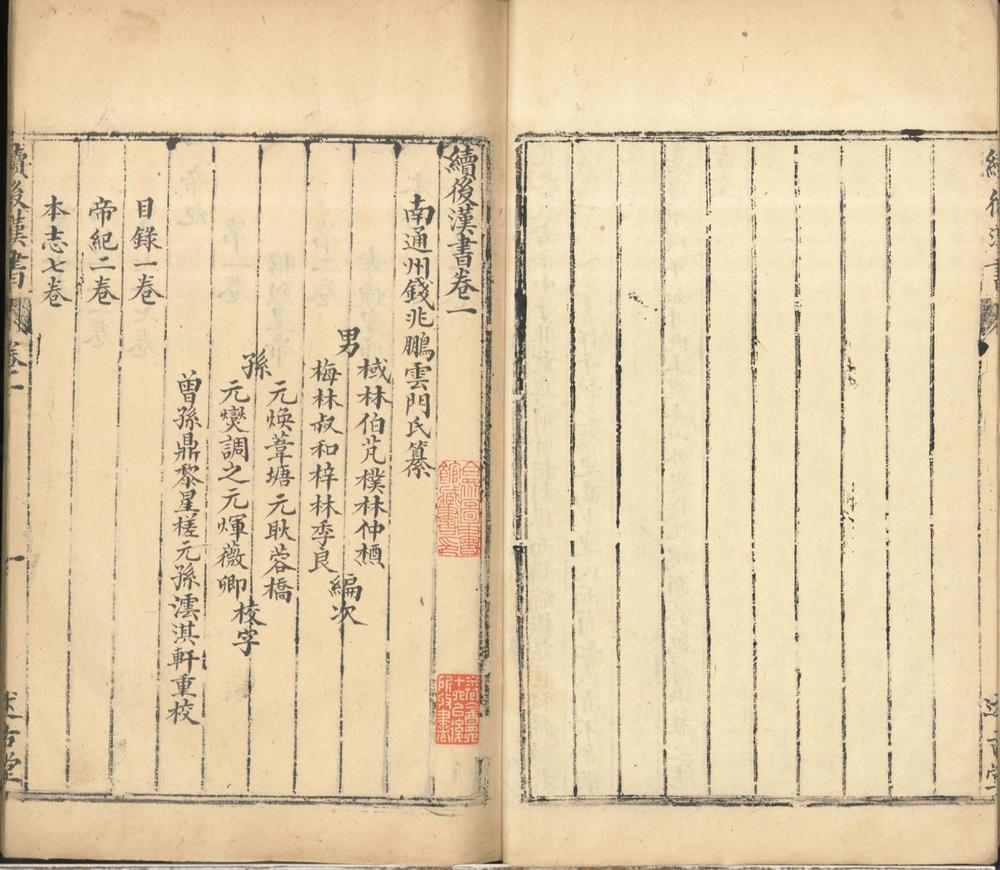 續後漢書卷一
南通州錢兆鵬雲門氏纂
男
棫林伯芃樸林仲槱
梅林叔和梓林季良
編次
孫
元煥葦塘元耿蓉橋
元爕調之元煇薇卿
校字
曾孫鼎黎星槎元孫澐淇軒重校
目錄一卷
帝紀二卷
本志七卷
續後漢書
卷一
一
述古堂